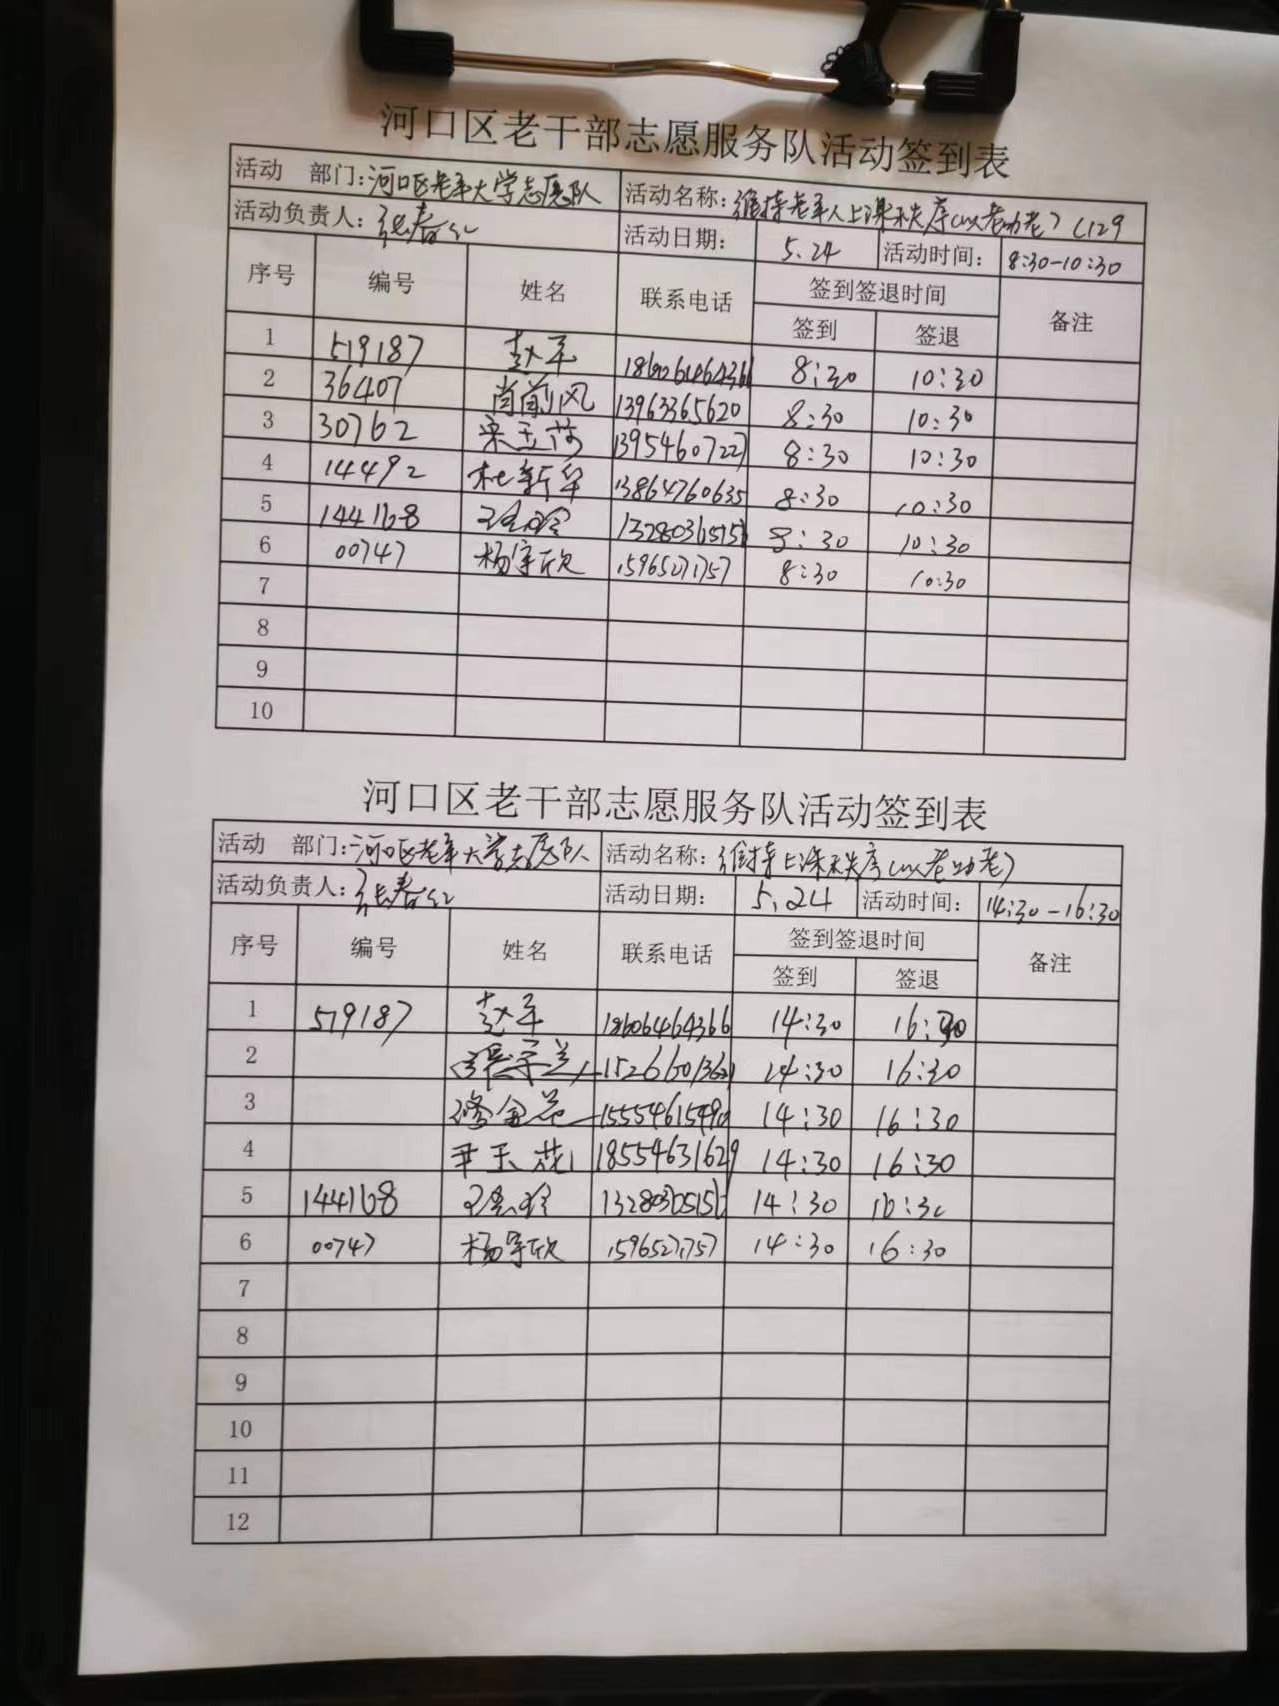 河口区老干部志愿服务队活动签到表
活动 部门: 河口区老年大学志愿队 活动名称: 维持老年人上课秩序(以老助老)
活动负责人: 张春红 活动日期: 5.24 活动时间: 8:30-10:30
序号 编号 姓名 联系电话 签到签退时间 备注
签到 签退
1 519187 赵军 18606464366 8:30 10:30
2 36407 肖前风 13963365620 8:30 10:30
3 30762 13954607227 8:30 10:30
4 14492 杜新华 13864760635 8:30 10:30
5 144168 8:30 10:30
6 00747 杨宇欣 15965271757 8:30 10:30
7
8
9
10
河口区老干部志愿服务队活动签到表
活动 部门: 河口区老年大学志愿队 活动名称: 维持上课秩序(以老助老)
活动负责人: 张春红 活动日期: 5.24 活动时间: 14:30-16:30
序号 编号 姓名 联系电话 签到签退时间 备注
签到 签退
1 519187 赵军 18606464366 14:30 16:30
2 14:30 16:30
3 14:30 16:30
4 尹玉花 18554631629 14:30 16:30
5 144168 14:30 16:30
6 00747 杨宇欣 15965271757 14:30 16:30
7
8
9
10
11
12